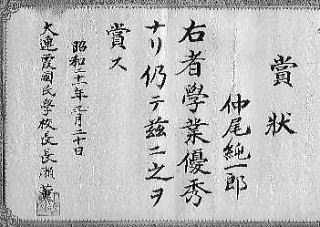 賞狀
仲尾純一郎
右者學業優秀
ナリ仍テ茲ニ之ヲ
賞ス
昭和二十一年三月二十日
大連霞國民學校長長瀬薫